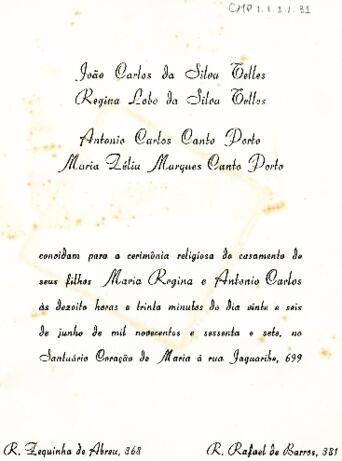 CMP 1.1.2.1.31
João Carlos da Silva Telles
Regina Lobo da Silva Telles
Antonio Carlos Canto Porto
Maria Zélia Marques Canto Porto
convidam para a cerimônia religiosa do casamento de
seus filhos Maria Regina e Antonio Carlos
às dezoito horas e trinta minutos do dia vinte e seis
de junho de mil novecentos e sessenta e sete, no
Santuário Coração de Maria à rua Jaguaribe, 699
R. Zequinha de Abreu, 368
R. Rafael de Barros, 381